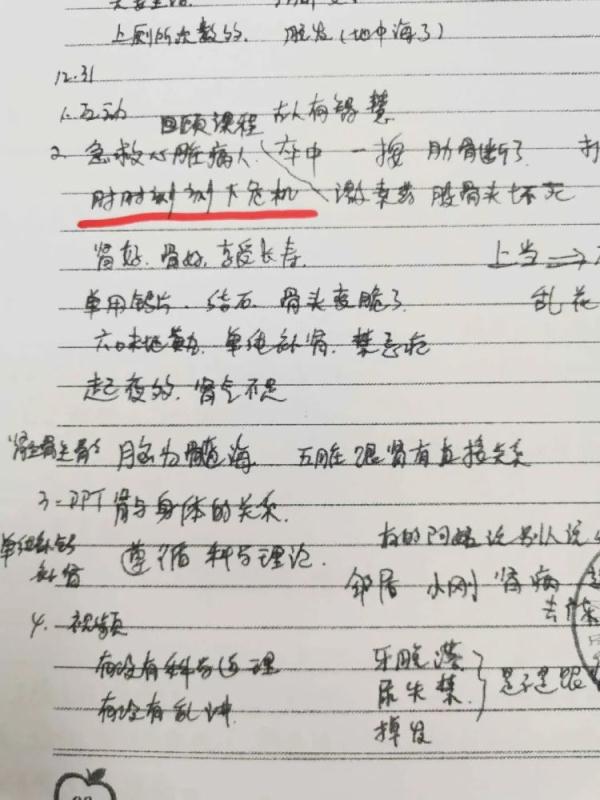 上厕所次数多. 脱发(地中海了)
12.31
1.互动 回顾课程 古人有智慧
2. 急救心脏病人. 卒中 一按 肋骨断了
时时刻刻下危机 激素药 股骨头坏死
肾好. 骨好. 享受长寿.
单用钙片. 结石. 骨头变脆了. 乱花
上当⇒
六味地黄丸. 单纯补肾. 禁忌症
起夜多. 肾气不足
脑为髓海 五脏跟肾有直接关系
3.PPT肾与身体的关系.
单纯补钙
补肾
遵循科学理论.
有的阿姨说别人说
邻居 小刚 肾病
4. 视频
有没有科学道理
有没有乱讲
牙龈
尿失禁
掉发
是不是跟